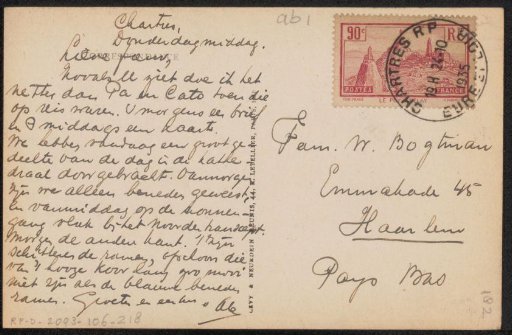 ab1
Chartres,
Donderdagmiddag.
Lieve
Zooals U ziet doe ik het
netter dan Pa en Cato toen die
op reis waren. 's morgens een brief
en 's middags een kaart.
We hebben vandaag een groot ge-
deelte van de dag in de kathe-
draal doorgebracht. Vanmorgen
zijn we alleen beneden geweest
en vanmiddag op de
gang vlak bij het Noorder
Morgen de andere kant. 't Zijn
schitterende ramen, ofschoon die
van 't hooge koor lang zoo mooi
niet zijn als de blauwe beneden
ramen. Groeten en
90c
RF
POSTES
FRANCE
LE P
CHARTRES RP
EURE
1935
Fam. W. Bogtman
Emmakade 45
Haarlem
Pays Bas
LEVY & NEURDEIN REUNIS, 44, R. LETELLIER, P
RP-D-2093-106-218